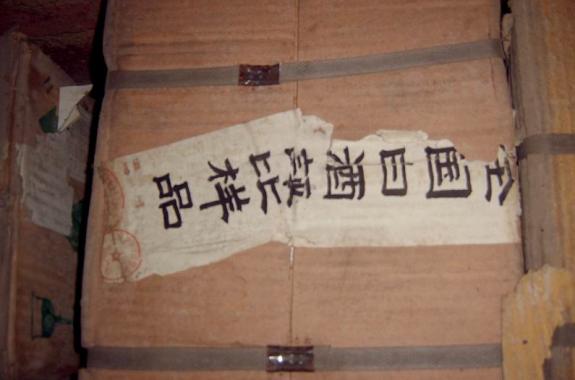 全国白酒评比样品